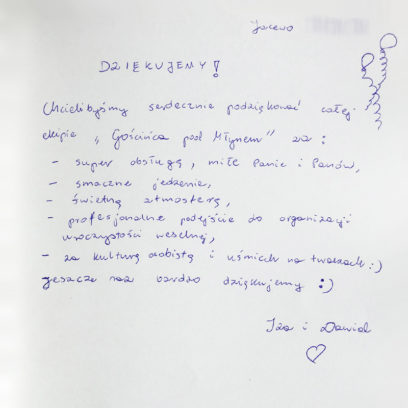 Jacewo
DZIĘKUJEMY!
Chcielibyśmy serdecznie podziękować całej
ekipie „Gościńca pod Młynem" za:
- super obsługę, miłe Panie i Panów,
- smaczne jedzenie,
- świetną atmosferę,
- profesjonalne podejście do organizacji
uroczystości weselnej,
- za kulturę osobistą i uśmiech na twarzach :)
Jeszcze raz bardzo dziękujemy :)
Iza i Dawid